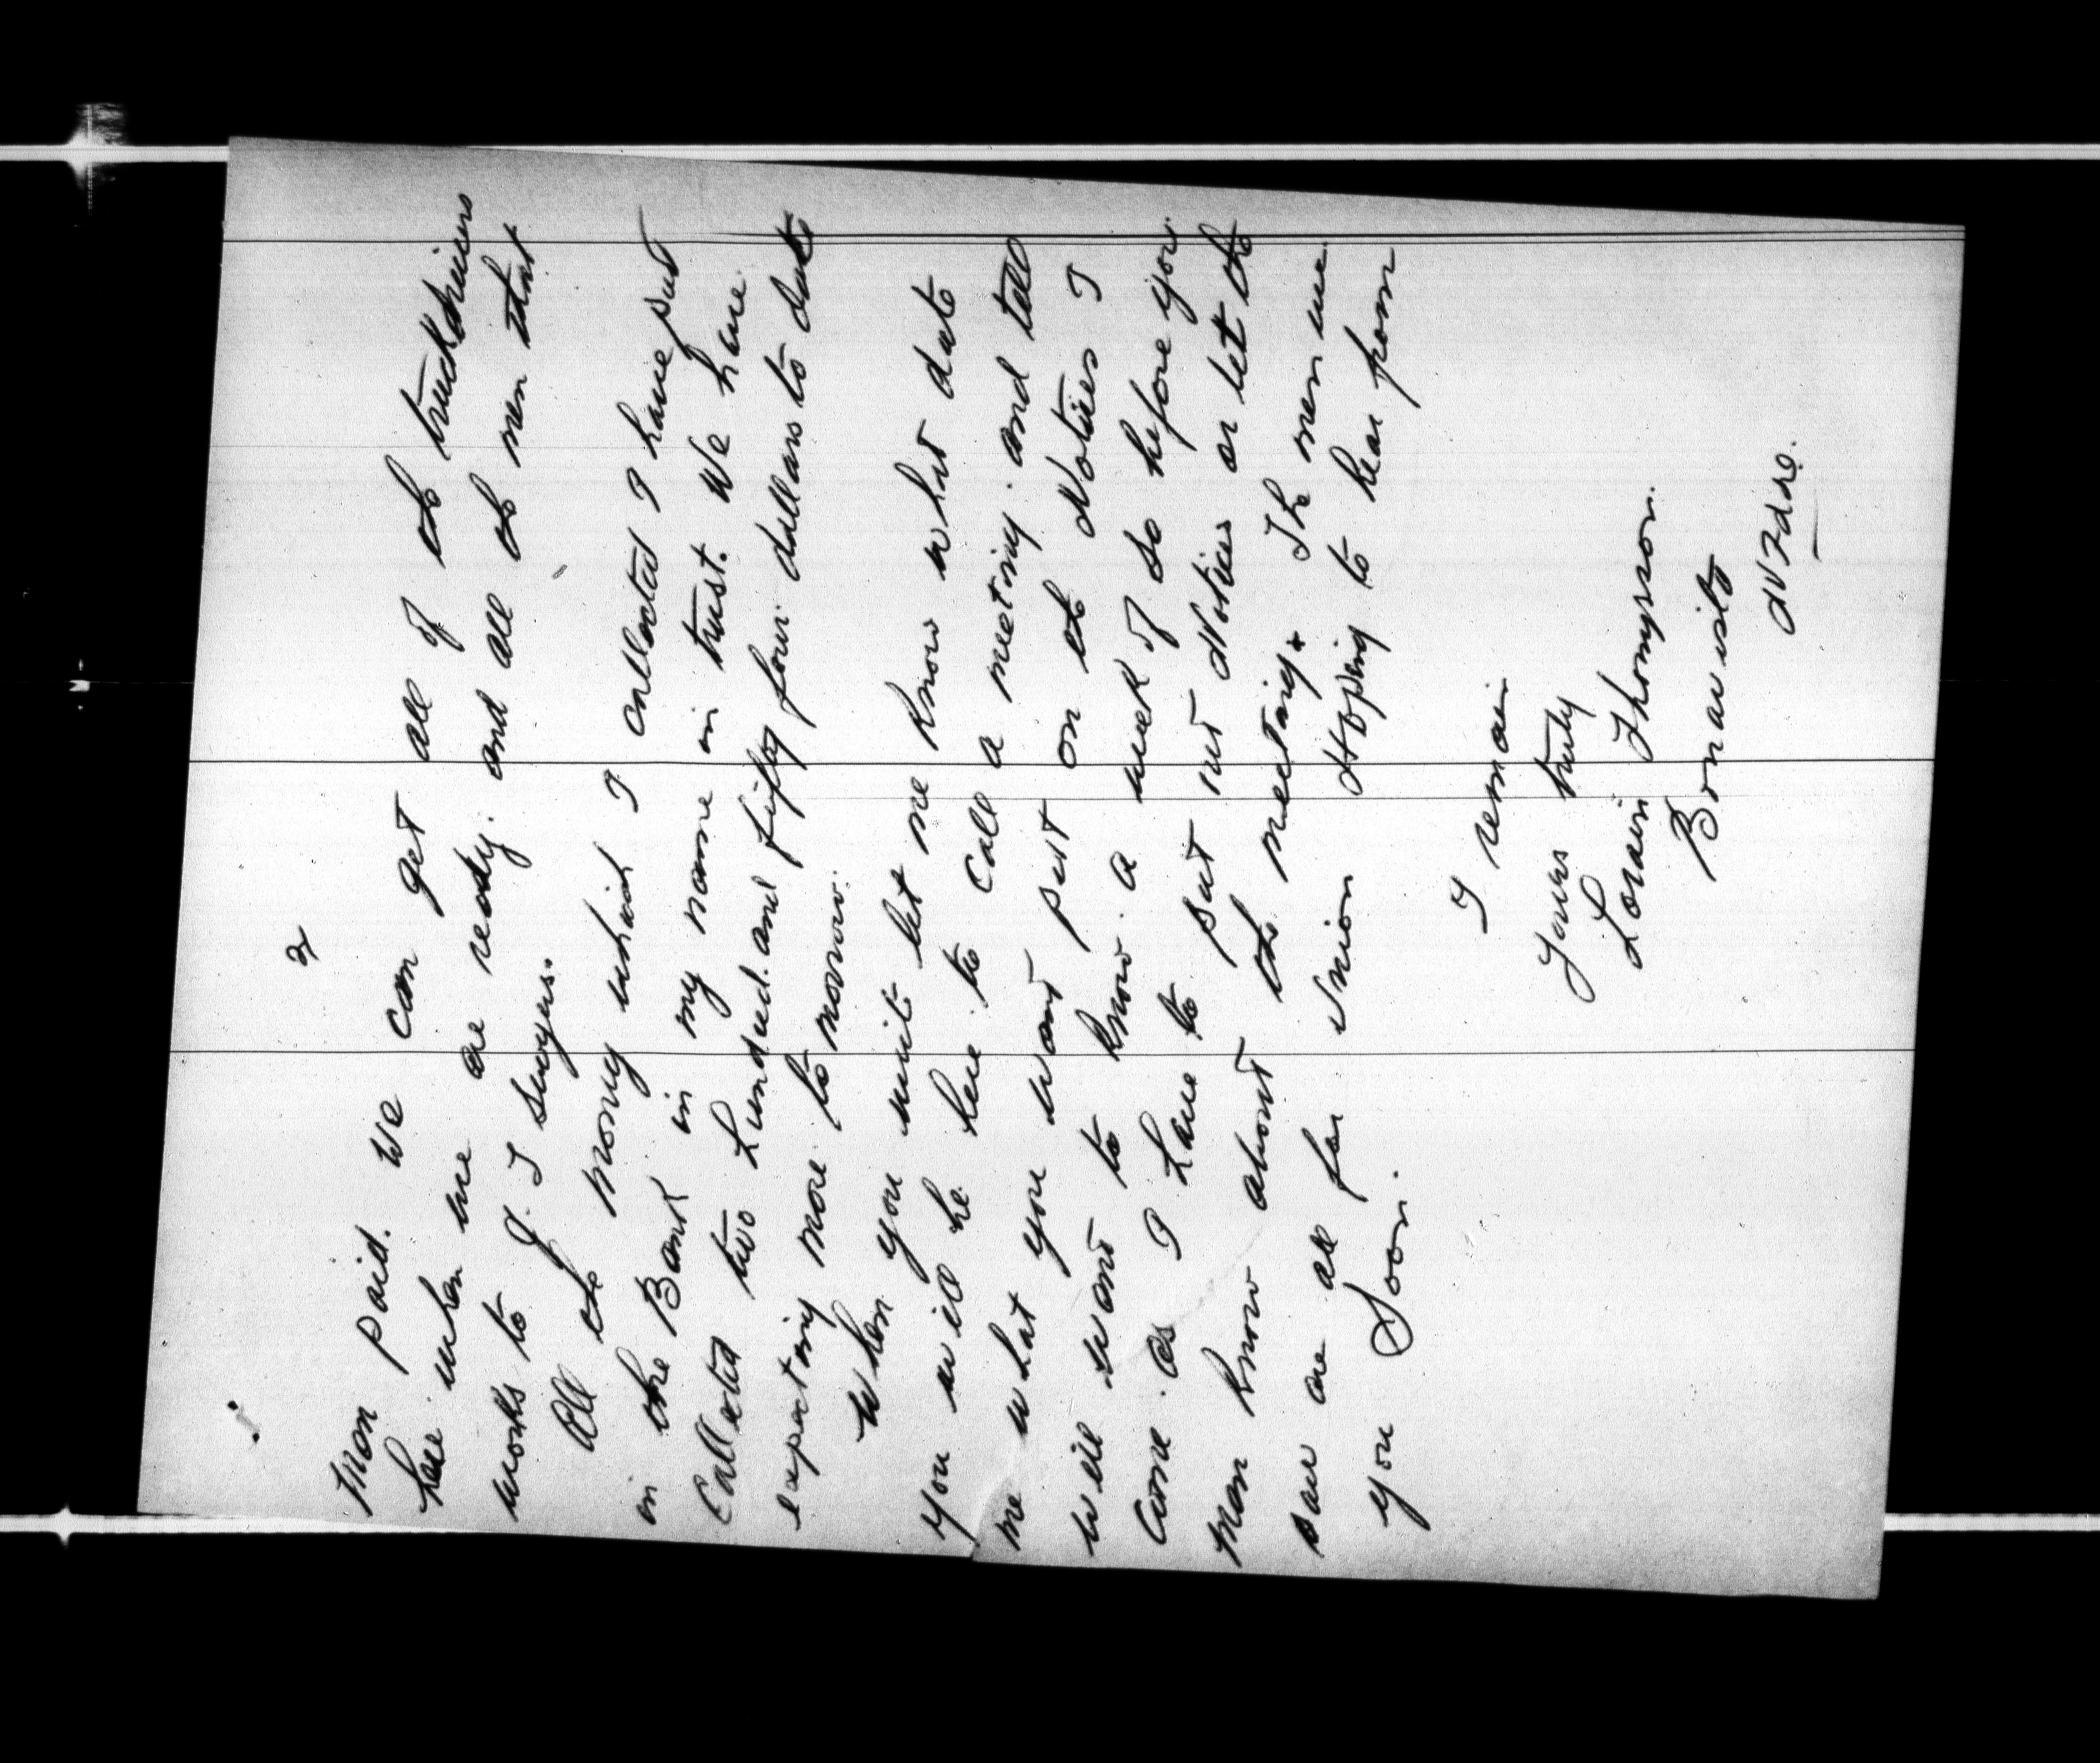 2
Mon paid. We can get all of the truckdrivers
here when we are ready. and all the men that
works to J. J
All the money which I collected I have put
in the Bank in my name in trust. We have
collected two hundred and fifty four dollars to date
expecting more to morrow.
When you write let me know what date
you will be here to call a meeting. and tell
me what you want put on the Notices I
will want to know. a week or so before you
come. as I have to put out Notices or let the
men know about the meeting. The men we
saw are all for Union Hoping to hear from
you Soon.
I remain
Yours truly
Thompson.
Bonavista
Nfdld.